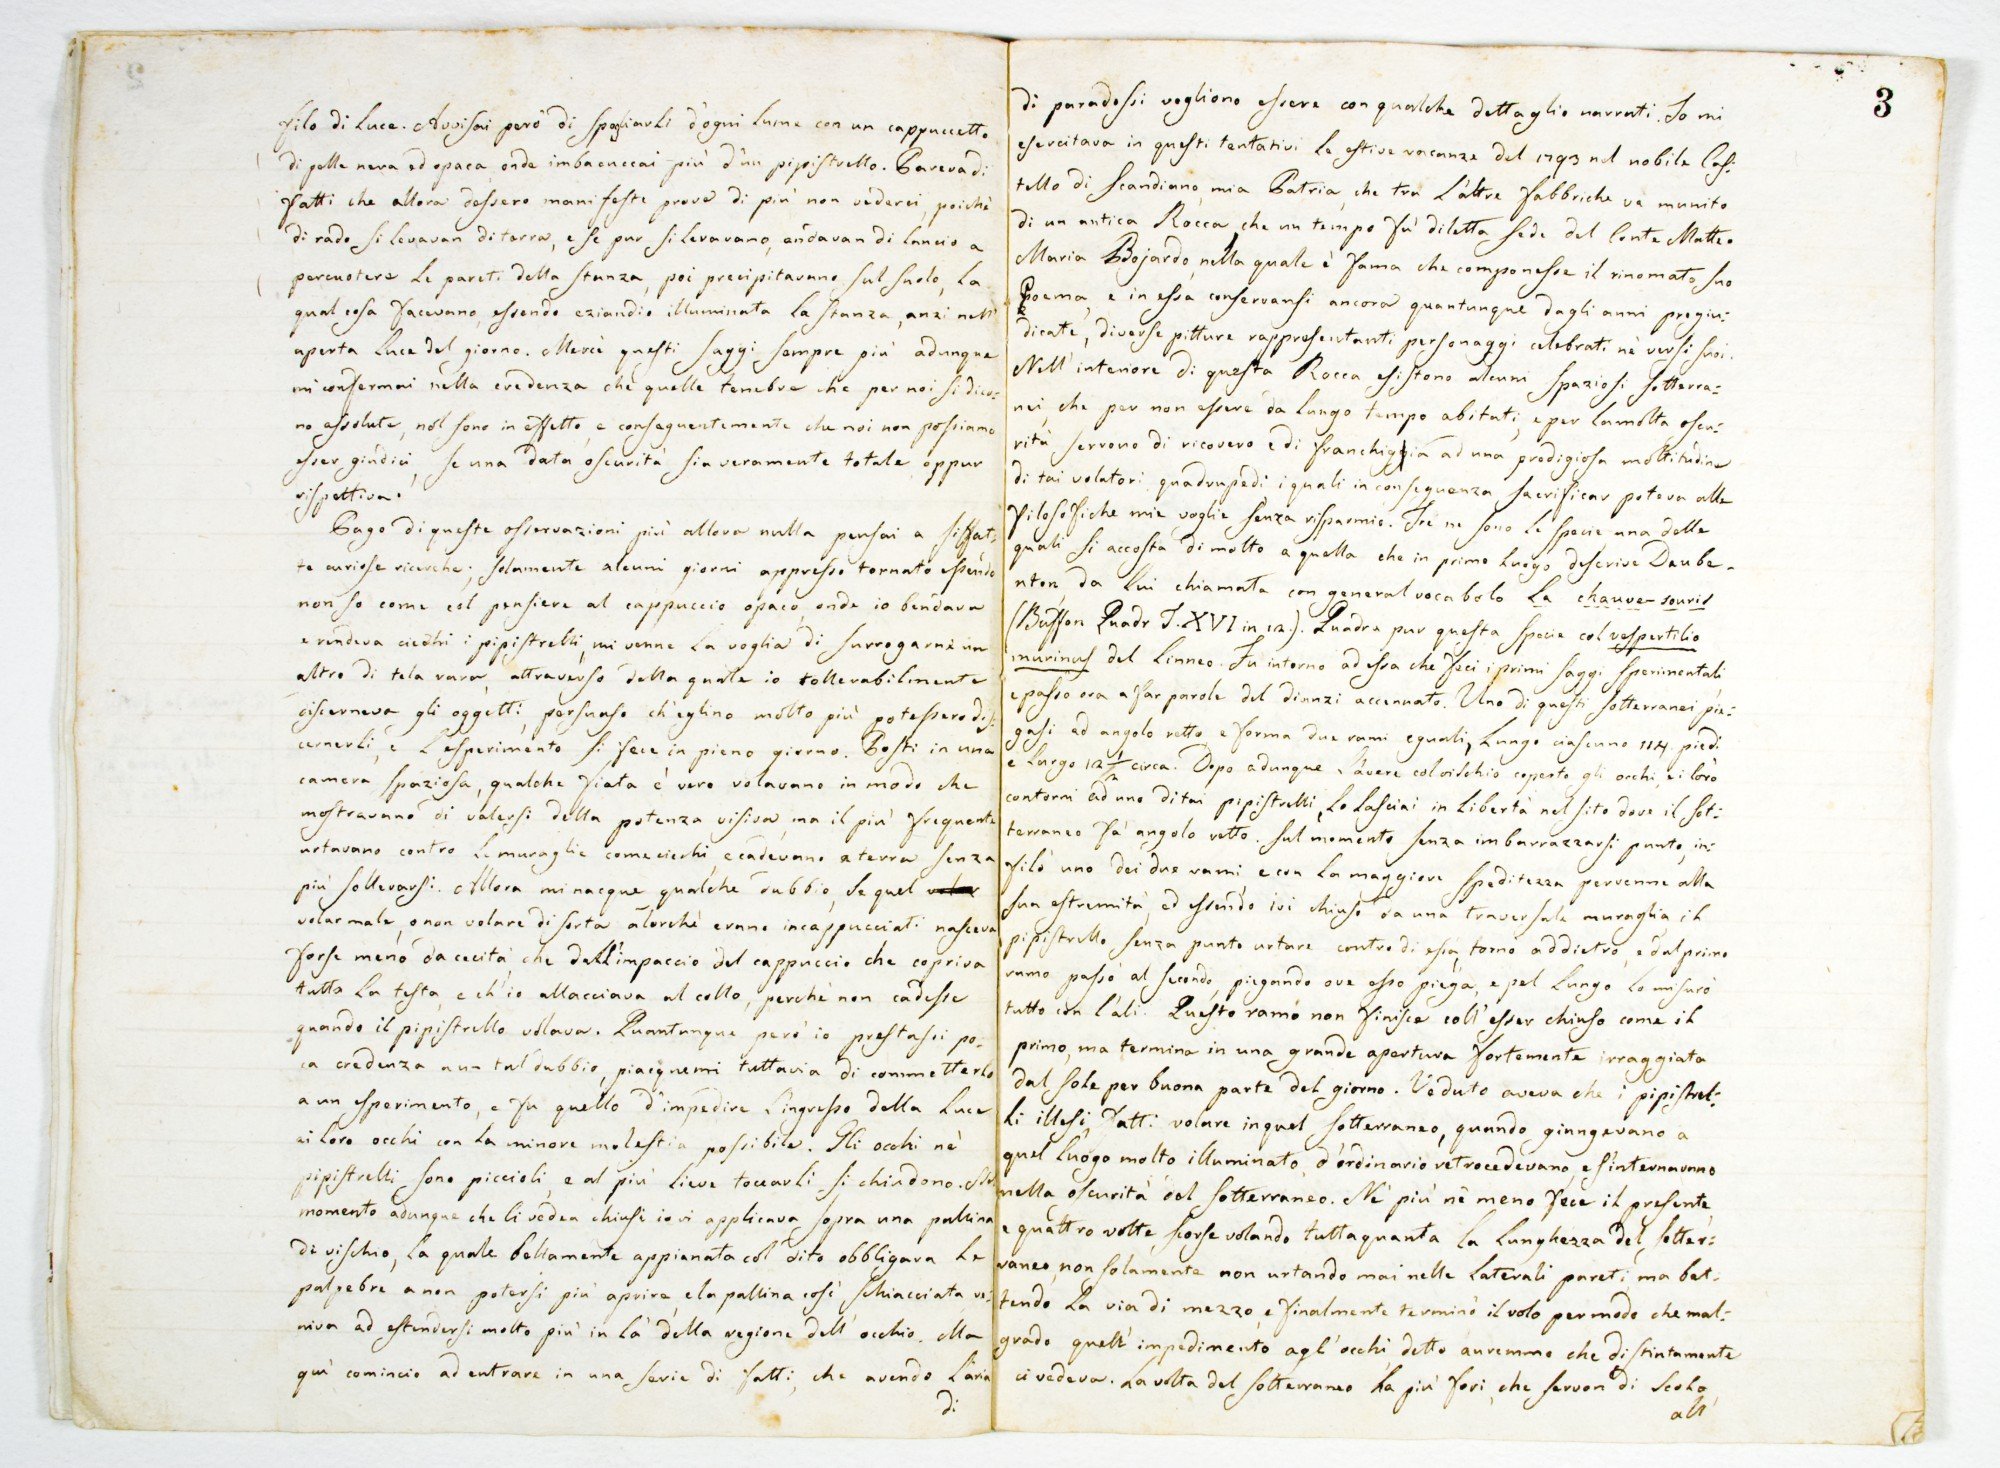 filo di luce. Avvisai però di spogliarli d'ogni lume con un cappuccetto
di pelle nera ed opaca onde imbacuccai più d'un pipistrello. Pareva di
fatti che allora dessero manifeste prove di più non vederci, poichè
di rado si levavan di terra, e se pur si levavano, andavan di lancio a
percuotere le pareti della stanza, poi precipitavano sul suolo, la
qual cosa facevano, essendo eziandio illuminata la stanza, anzi nell'
aperta luce del giorno. Mercè questi saggi sempre più adunque
mi confermai nella credenza che quelle tenebre che per noi si dico-
no assolute, nol sono in effetto, e conseguentemente che noi non possiamo
esser giudici, se una data oscurità sia veramente totale, oppur
rispettiva.
Pago di queste osservazioni più allora nulla pensai a siffat-
te curiose ricerche; solamente alcuni giorni appresso tornato essendo
non so come col pensiere al cappuccio opaco, onde io bendava
e rendeva ciechi i pipistrelli, mi venne la voglia di surrogarne un
altro di tela rara, attraverso della quale io tollerabilmente
discerneva gli oggetti, persuaso ch'eglino molto più potessero dis-
cernerli, e l'esperimento si fece in pieno giorno. Posti in una
camera spaziosa, qualche fiata è vero volavano in modo che
mostravano di valersi della potenza visiva, ma il più frequente
urtavano contro le muraglie come ciechi, e cadevano a terra senza
più sollevarsi. Allora mi nacque qualche dubbio, se quel
volar male, o non volare di sorta alorchè erano incappucciati nasceva
forse meno da cecità, che dall'impaccio del cappuccio che copriva
tutta la testa, e ch'io allacciava al collo, perchè non cadesse
quando il pipistrello volava. Quantunque però io prestassi po-
ca credenza a un tal dubbio, piacquemi tuttavia di commetterlo
a un esperimento, e fu quello d'impedire l'ingresso della luce
ai loro occhi con la minore molestia possibile. Gli occhi nè
pipistrelli sono piccioli, e al più lieve toccarli si chiudono. Sul
momento adunque che li vedea chiusi io vi applicava sopra una pallina
di vischio, la quale bellamente appianata col dito obbligava le
palpebre a non potersi più aprire, e la pallina così schiacciata ve-
niva ad estendersi molto più in là della regione dell'occhio. Ma
quì comincio ad entrare in una serie di fatti, che avendo l'aria
di
3
di paradossi vogliono essere con qualche dettaglio narrati. Io mi
esercitava in questi tentativi le estive vacanze del 1793 nel nobile Cas-
tello di Scandiano mia Patria, che tra l'altre fabbriche va munito
di un antica Rocca, che un tempo fù diletta sede del Conte Matteo
Maria Bojardo, nella quale è fama che componesse il rinomato suo
Poema, e in essa conservansi ancora quantunque dagli anni pregiu-
dicate, diverse pitture rappresentanti personaggi celebrati nè versi suoi.
Nell'interiore di questa Rocca esistono alcuni spaziosi sotterra-
nei, che per non essere da lungo tempo abitati, e per la molta oscu-
rità servono di ricovero e di franchigia ad una prodigiosa moltitudine
di tai volatori quadrupedi i quali in conseguenza sacrificar poteva alle
filosofiche mie voglie senza risparmio. Tre ne sono le specie una delle
quali si accosta di molto a quella che in primo luogo descrive Daube-
nton, da lui chiamata con general vocabolo la chauve-souris
(Buffon Quadr T. XVI in 12.). Quadra pur questa specie col vespertilio
murinus del Linneo. Fu intorno ad essa che feci i primi saggi sperimentali
e passo ora a far parole del dianzi accennato. Uno di questi sotterranei pie-
gasi ad angolo retto e forma due rami eguali, lungo ciascuno 114 piedi
e largo 12 1/2 circa. Dopo adunque l'avere col vischio coperto gli occhi, e i loro
contorni ad uno di tai pipistrelli, lo lasciai in libertà nel sito dove il sot-
terraneo fà angolo retto. Sul momento senza imbarrazzarsi punto, in-
filò uno dei due rami e con la maggiore speditezza pervenne alla
sua estremità, ed essendo ivi chiuso da una traversale muraglia, il
pipistrello senza punto urtare contro di essa, tornò addietro, e dal primo
ramo passò al secondo, piegando ove esso piega, e pel lungo lo misurò
tutto con l'ali. Questo ramo non finisce coll'esser chiuso come il
primo, ma termina in una grande apertura fortemente irraggiata
dal sole per buona parte del giorno. Veduto aveva che i pipistrel-
li illesi, fatti volare in quel sotterraneo, quando giungevano a
quel luogo molto illuminato, d'ordinario retrocedevano, e s'internavano
nella oscurità del sotterraneo. Nè più nè meno fece il presente,
e quattro volte scorse volando tutta quanta la lunghezza del sotter-
raneo, non solamente non urtando mai nelle laterali pareti, ma bat-
tendo la via di mezzo, e finalmente terminò il volo per modo che mal-
grado quell'impedimento agl'occhi detto auremmo che distintamente
ci vedeva. La volta del sotterraneo ha più fori, che servon di scolo
all'